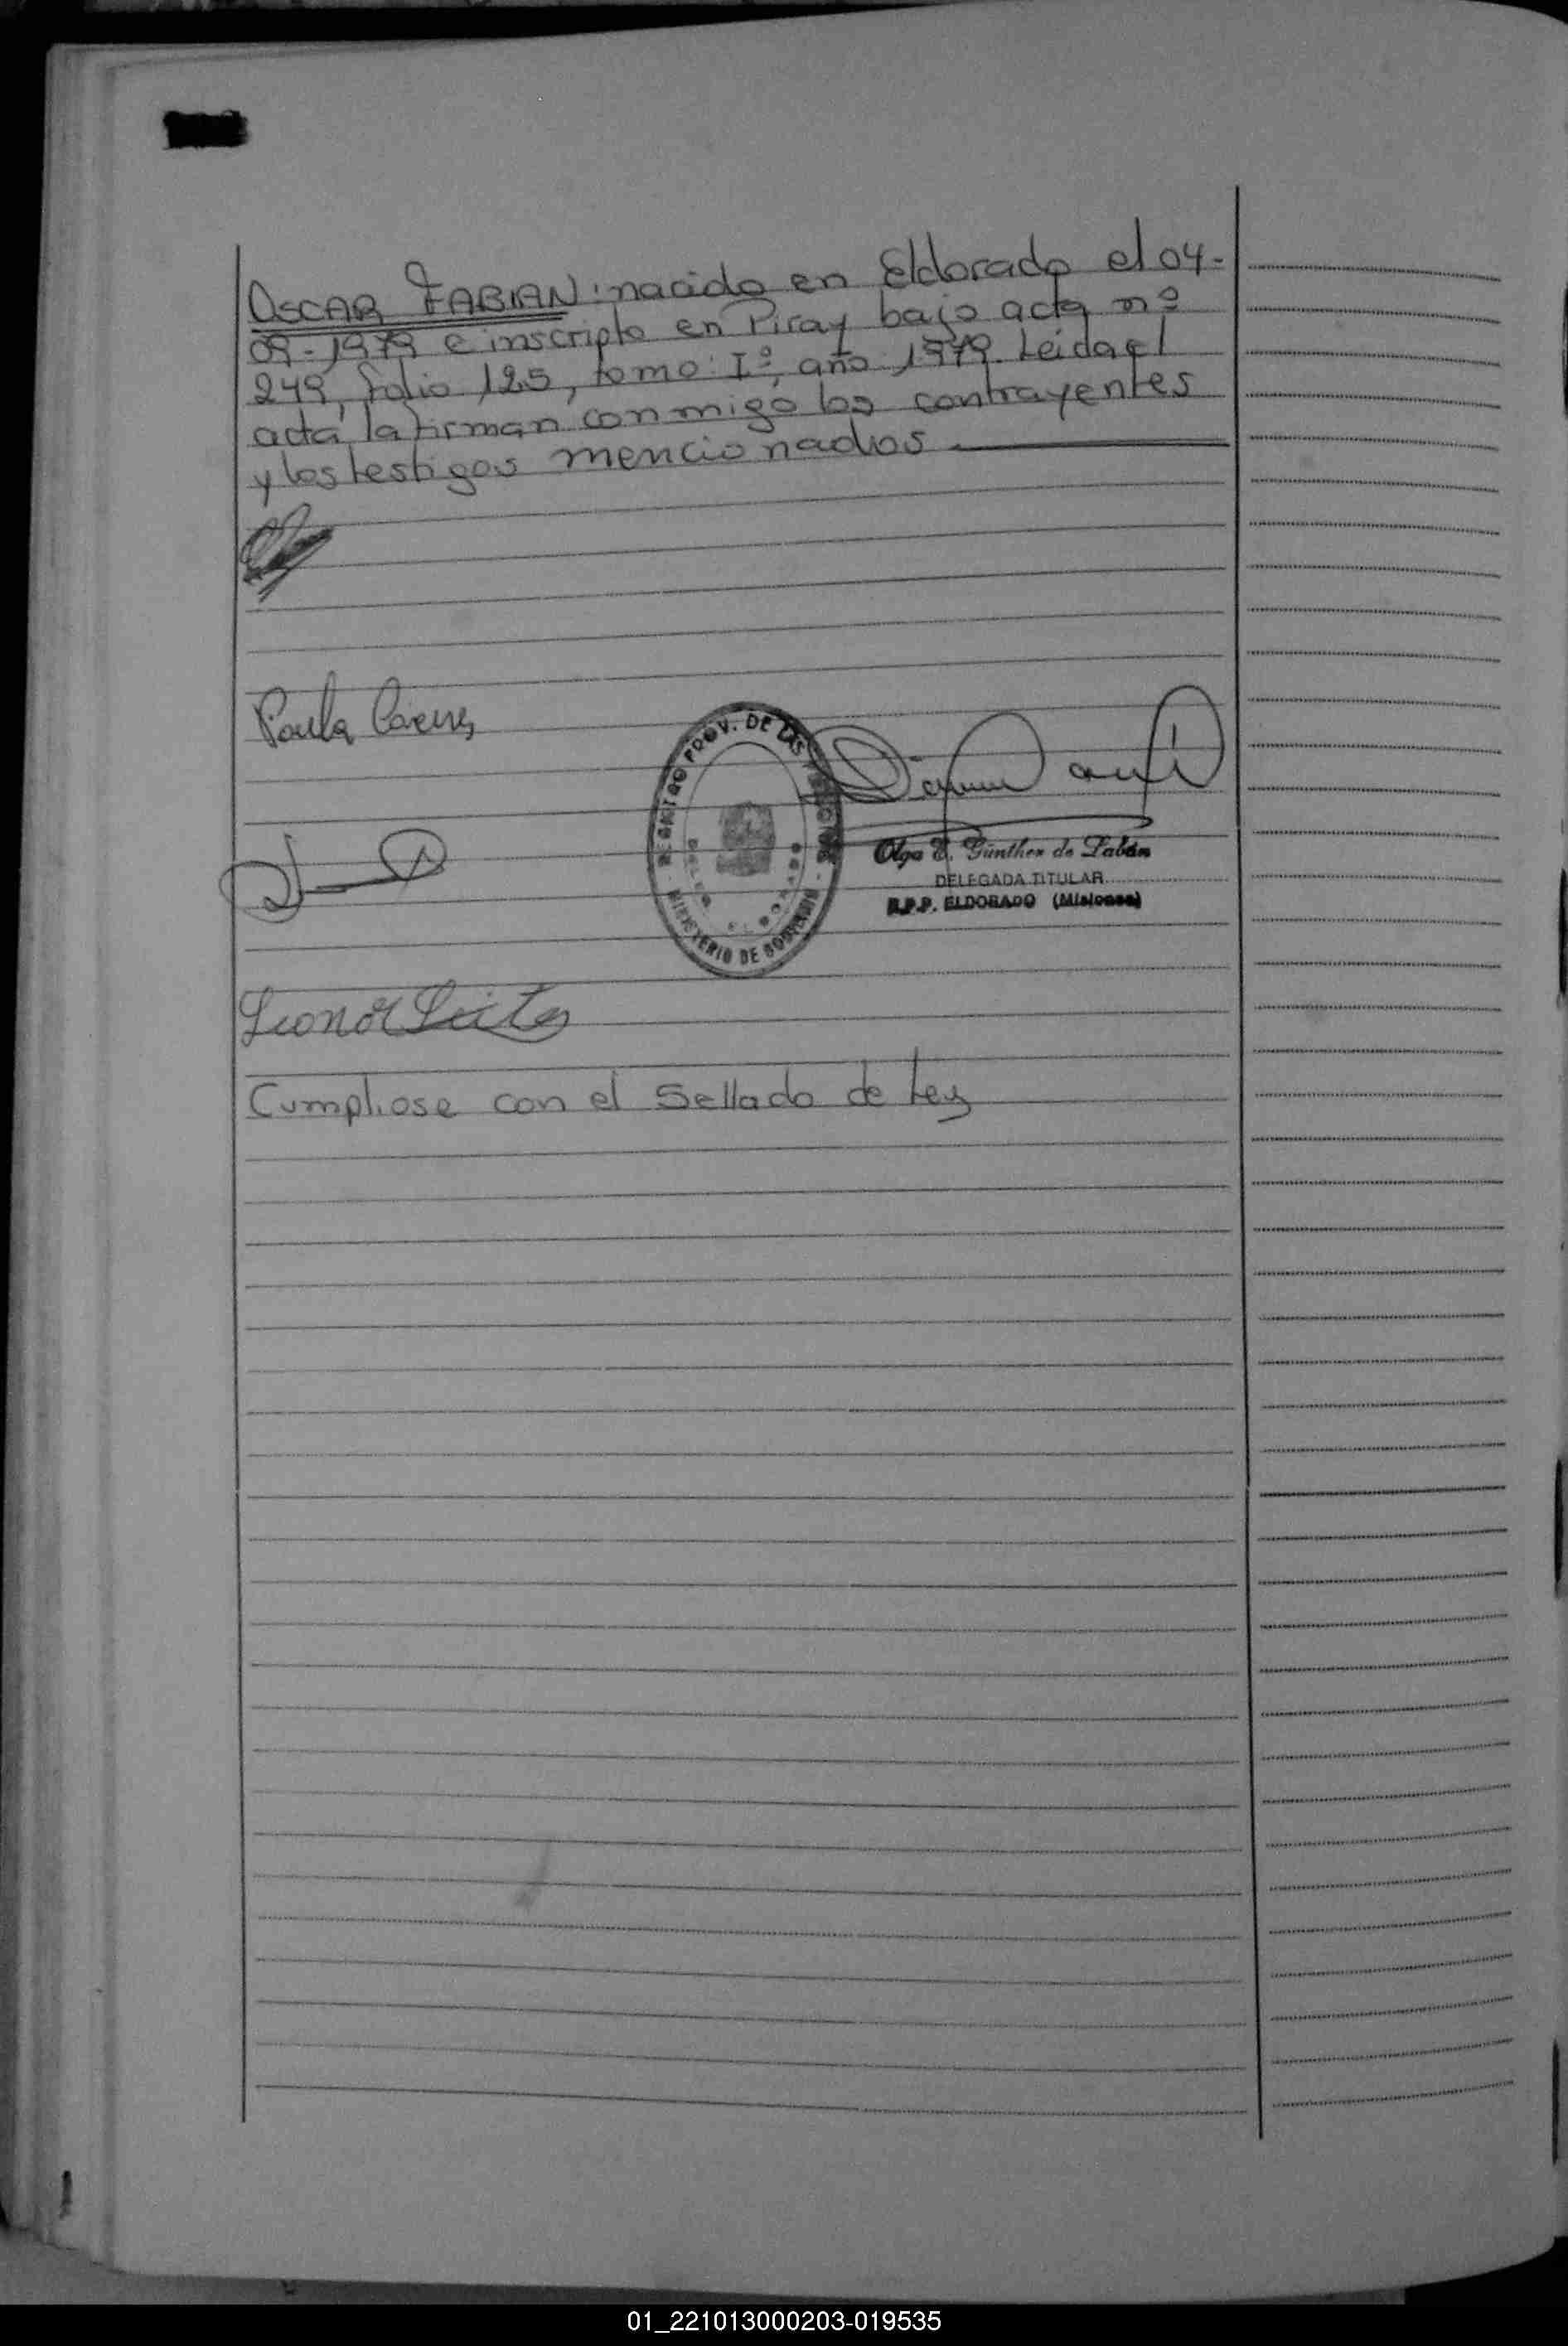 OSCAR FABIAN: nacido en Eldorado el 04-
09-1979 e inscripto en Piray bajo acta nº
249, folio 125, tomo: Iº, año 1979. Leida el
acta, la firman conmigo los contrayentes
y los testigos mencionados
Paula
REGISTRO PROV. DE LAS PERSONAS
MINISTERIO DE GOBIERNO
ELDORADO
Olga E. Günther de Pabán
DELEGADA TITULAR
R.P.P. ELDORADO (Misiones)
Leonor
Cumpliose con el Sellado de Ley
01_221013000203-019535